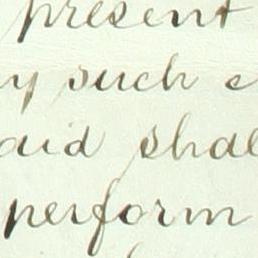 present
such
shal
perform